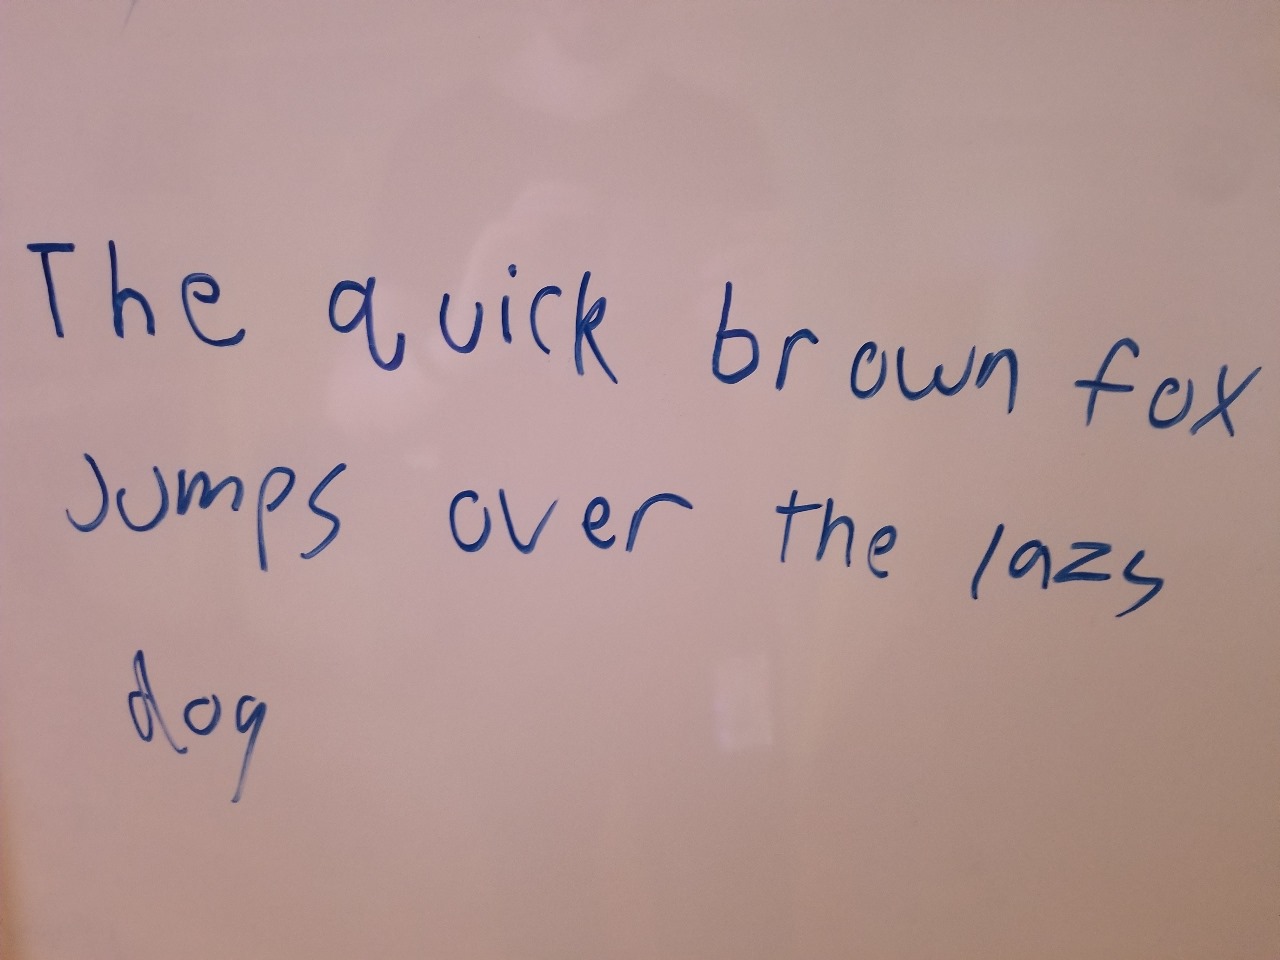 The quick brown fox
jumps over the lazs
dog